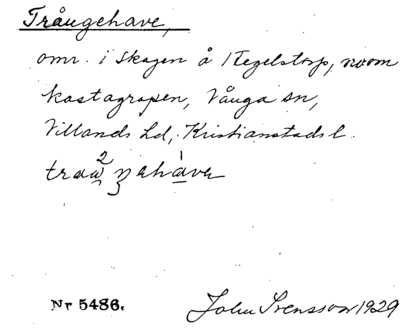 Trångehave,
omr. i Skogen å Kegelstorp, noom
Kastagropen, Vånga sn,
Villands hd, Kristianstads l.
Nr 5486.
John Svensson 1929